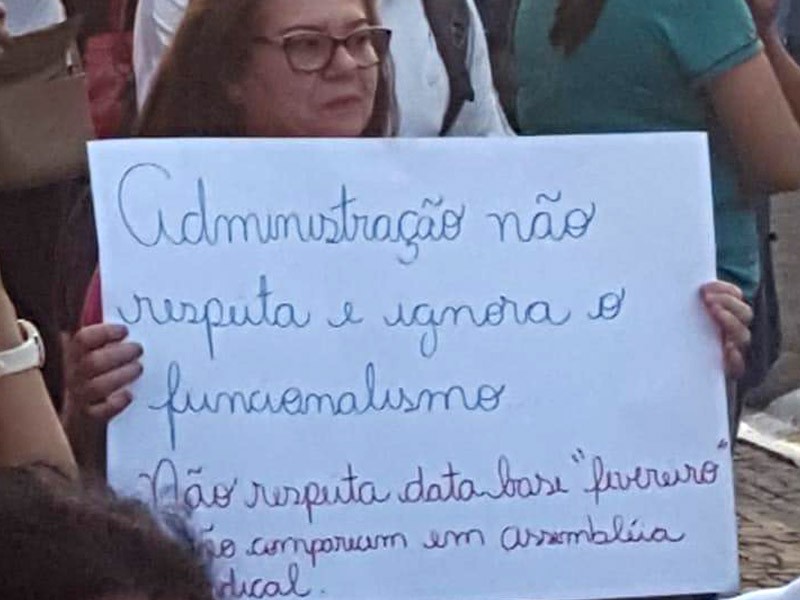 Administração não
respeita e ignora o
funcionalismo
Não respeita data base "fevereiro"
não compareceram em assembléia
dical.